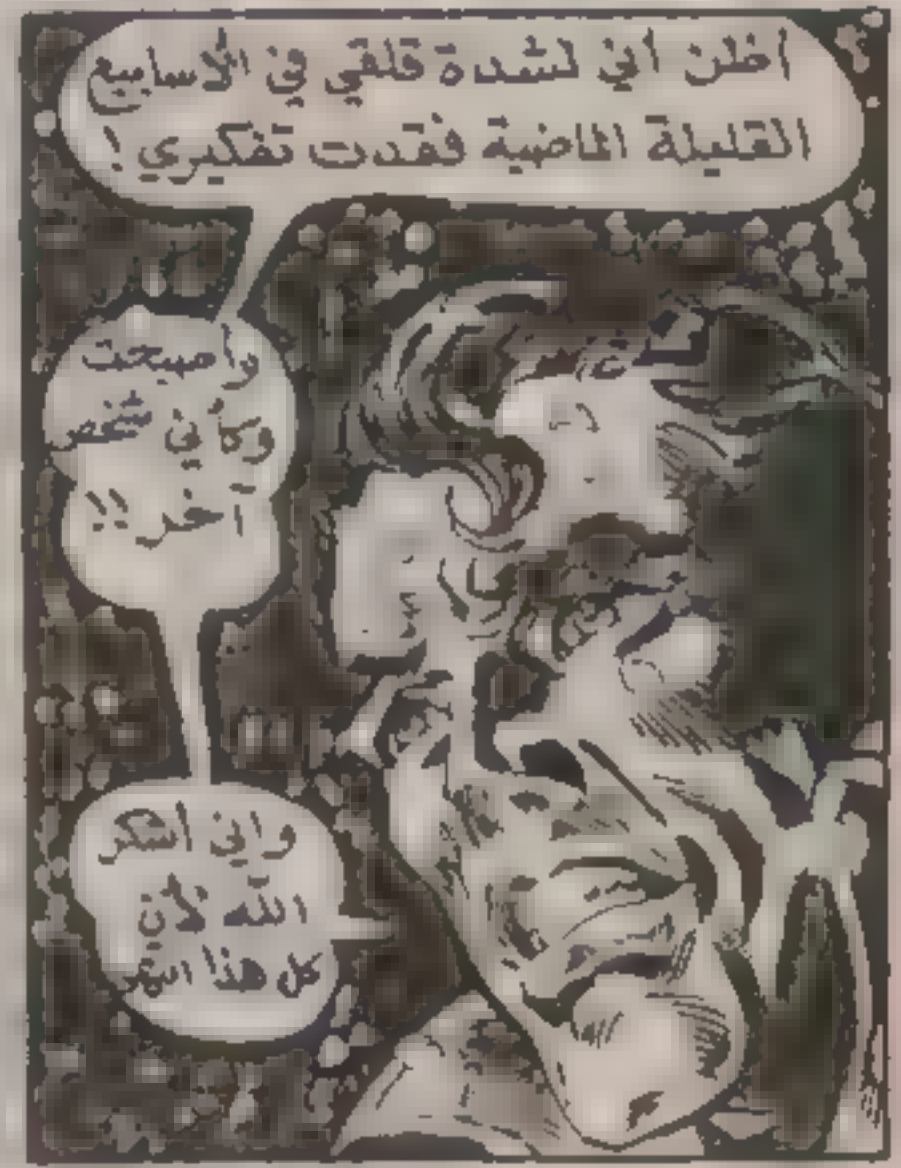 اظن أني لشدة قلقي في الأسابيع
القليلة الماضية فقدت تفكيري !
وأصبحت
وكأني شخص
آخر !!
واني أشكر
الله لأن
كل هذا انتهى